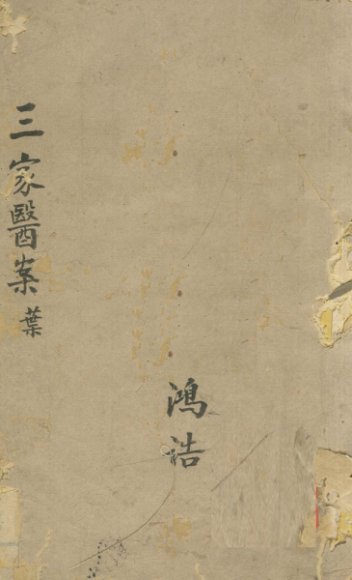 三家醫案 葉
鴻誥